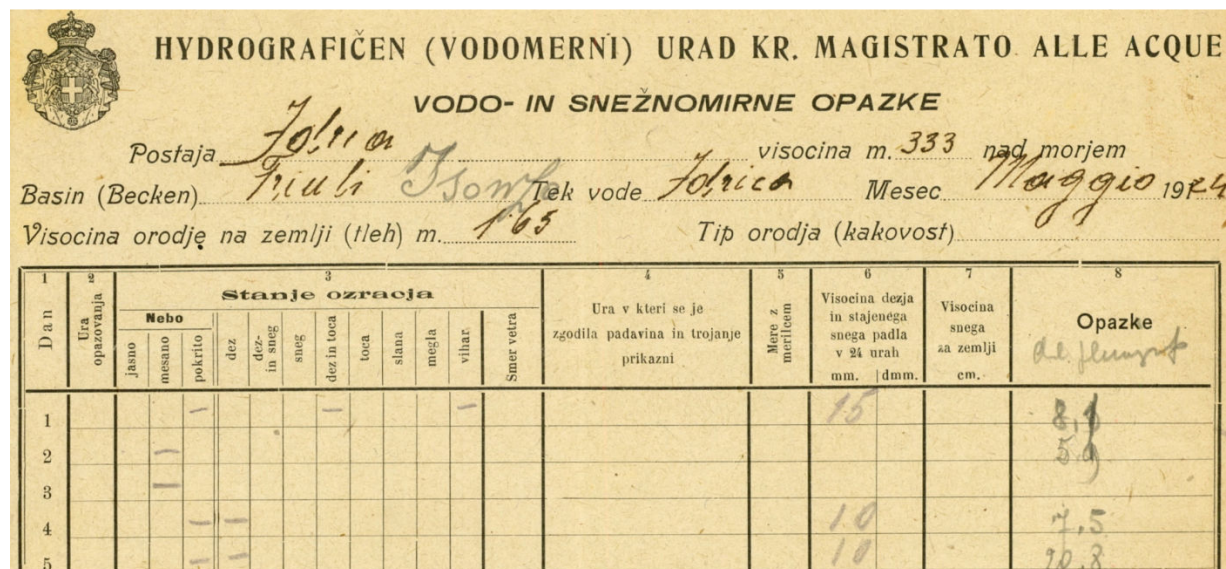 HYDROGRAFIČEN (VODOMERNI) URAD KR. MAGISTRATO ALLE ACQUE
VODO- IN SNEŽNOMIRNE OPAZKE
Postaja Idria visocina m. 333 nad morjem
Basin (Becken) Friuli Isonzo Tek vode Idrica Mesec Maggio 1924
Visocina orodje na zemlji (tleh) m. 1.65 Tip orodja (kakovost)
1 2 3 4 5 6 7 8
Dan
Ura opazovanja
Stanje ozracja
Nebo
jasno mesano pokrito dez dez- in sneg sneg dez in toca toca slana megla vihar. Smer vetra
Ura v kteri se je
zgodila padavina in trojanje
prikazni
Mere z merilcem
Visocina dezja
in stajenega
snega padla
v 24 urah
mm. dmm.
Visocina
snega
za zemlji
cm.
Opazke
1 15
2
3
4 10 7,5
5 10 20,8